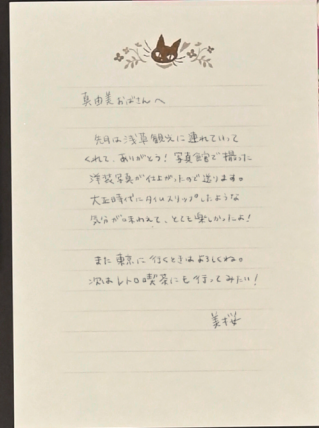 真由美おばさんへ
先日は浅草観光に連れていって
くれて、ありがとう！写真館で撮った
洋装写真が仕上がったので送ります。
大正時代にタイムスリップしたような
気分が味わえて、とても楽しかったよ！
また東京に行くときはよろしくね。
次はレトロ喫茶にも行ってみたい！
美桜